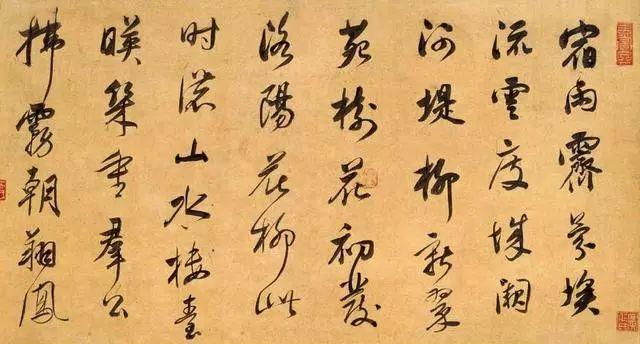 宿雨霽氛埃
流雲度城闕
河堤柳新翠
苑樹花初發
洛陽花柳此
時濃山水樓臺
暎幾重羣公
拂霧朝翔鳳